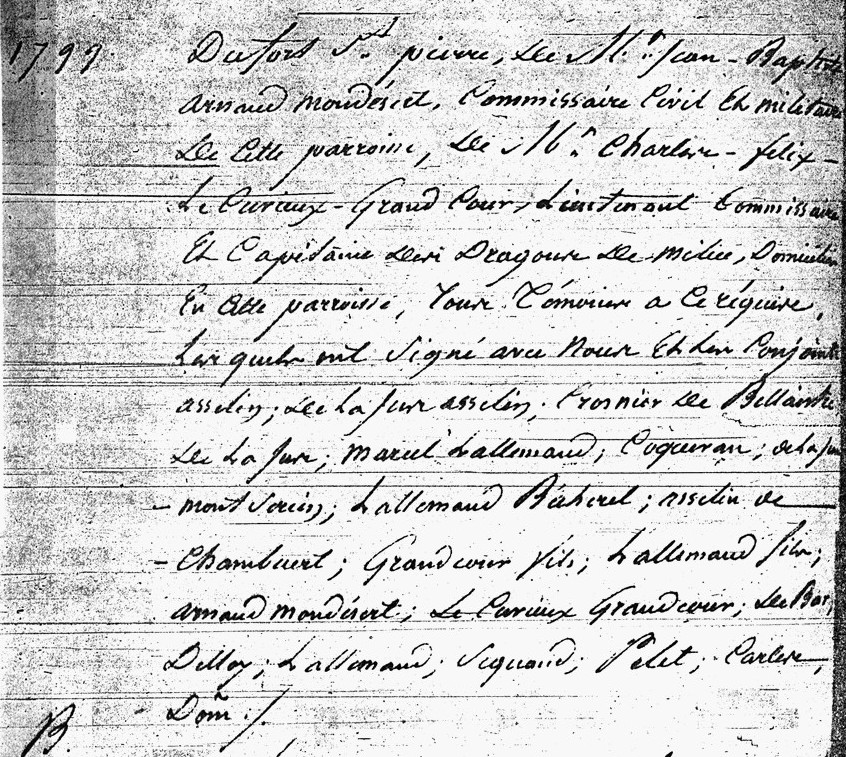 1799. Du fort St. pierre, De Mr. Jean - Baptiste
arnaud mondésert, Commissaire Civil Et militaire
De Cette parroisse, De Mr. Charles - felix -
Le Curieux - Grand Cour, Lieutenant Commissaire
Et Capitaine Des Dragons De milice, Domiciliés
En Cette parroisse, Tous Témoins a Ce réquis,
Lesquels ont Signé avec Nous Et Les Conjoints
asselin; De La Jus asselin; Crosnier De Bellaistre
De La Jus; marcel Lallemand; Coqueran; de La Jus
- mont Serein; Lallemand Bécherel; asselin de
- Chambuert; Grandcour fils; Lallemand fils;
arnaud mondésert; Le Curieux Grandcour; De Bar,
Delloy; Lallemand; Siguand; Pelet; Carles,
- Dom ./.
B.